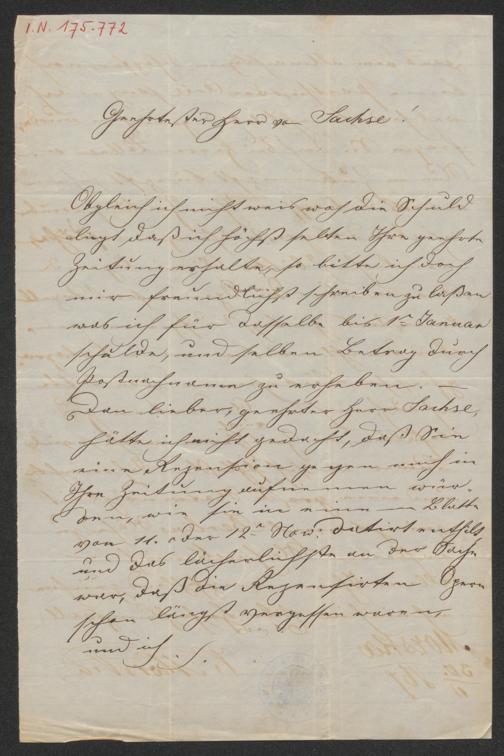 I.N. 175.772
Geehrtester Herr von Sachse!
Obgleich ich nicht weis woh die Schuld
liegt, daß ich höchst selten Ihre geehrte
Zeitung erhalte, so bitte ich doch
mir freundlichst schreiben zu laßen
was ich für dasselbe bis 1ten Januar
schulde, und selben Betrag durch
Postnachname zu erheben. —
Dan lieber, geehrter Herr Sachse,
hätte ich nicht gedacht, daß Sie
eine Rezension gegen mich in
Ihre Zeitung aufnemen wür-
den, wie sie in eine — Blatte
von 11. oder 12t Nov: datirt enthilt
und das lächerlichste an der Sache
war, daß die Rezensirten Opern
schon längst vergessen waren,
und ich ./.